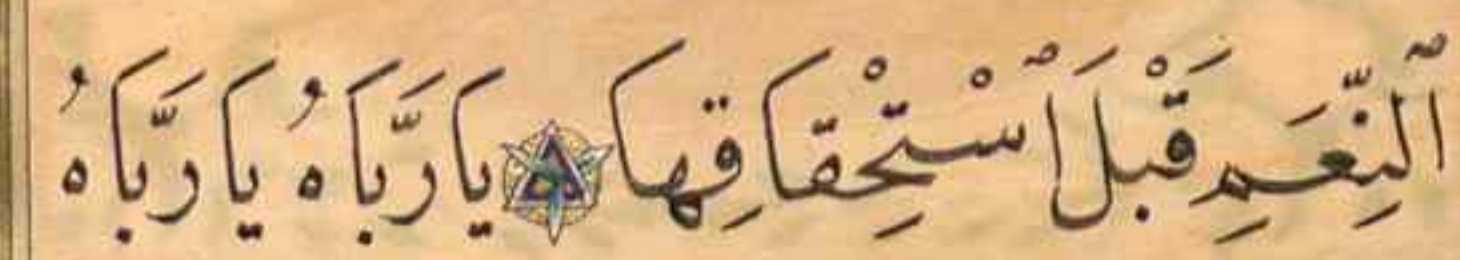 ٱلنِّعَمِ قَبْلَ ٱسْتِحْقَاقِهَا يَا رَبَّاهُ يَا رَبَّاهُ